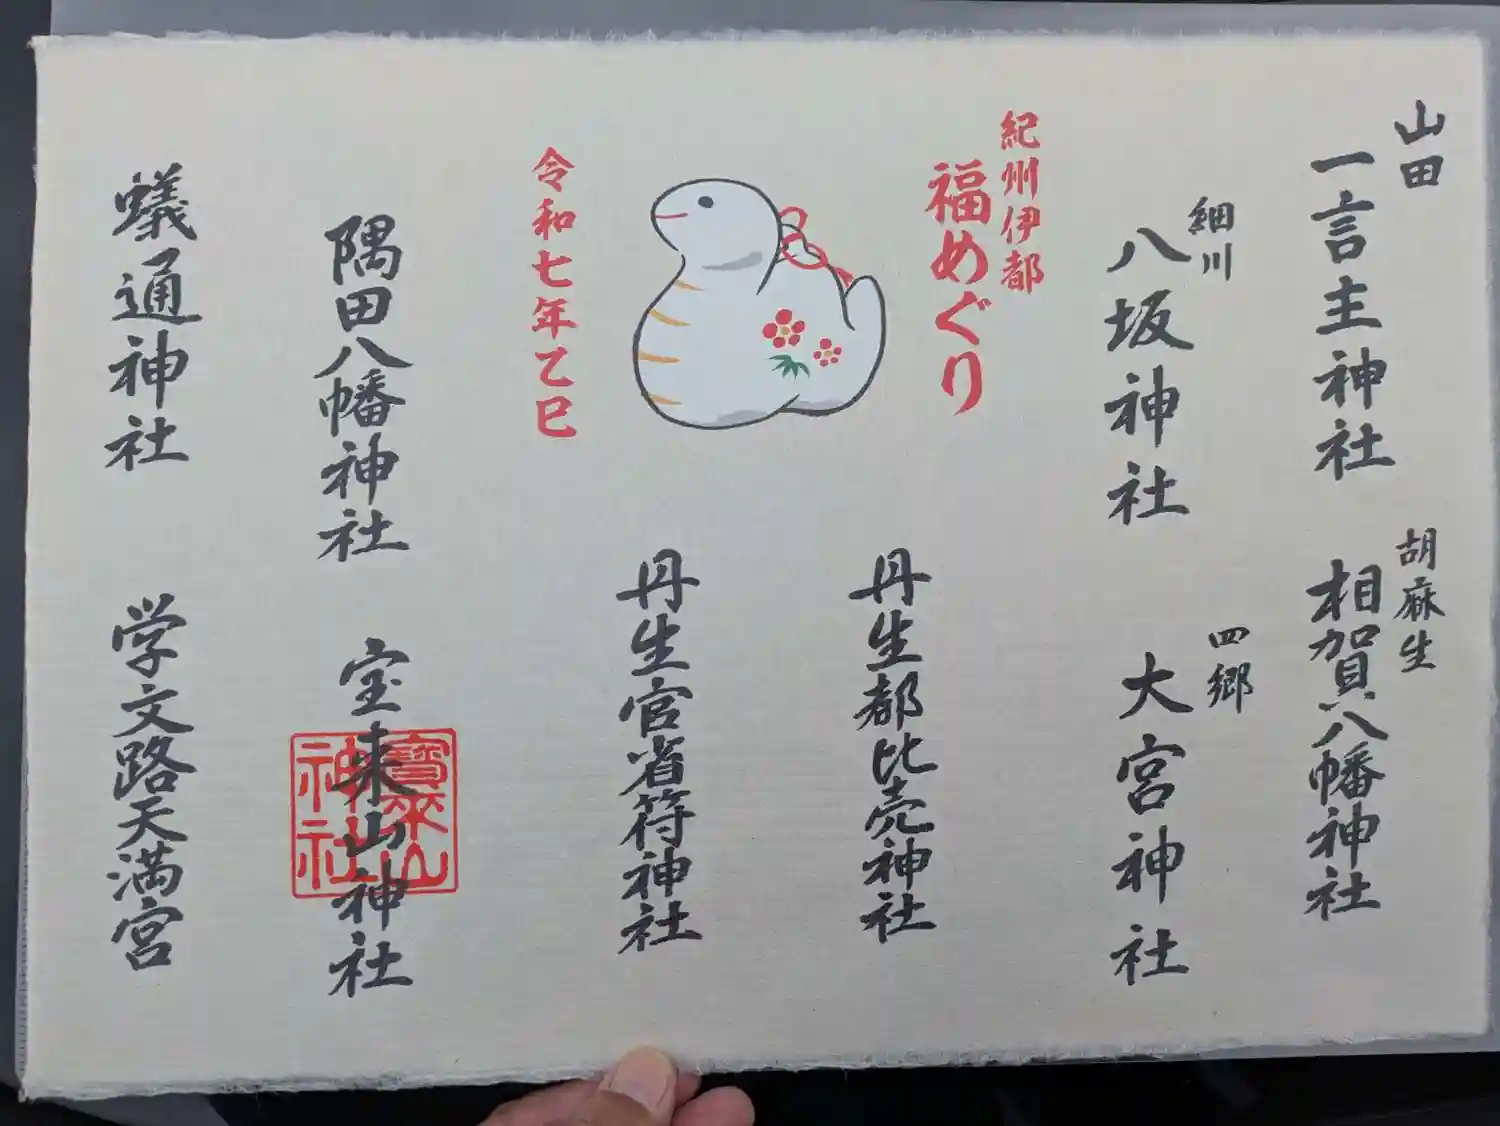 山田
一言主神社
胡麻生
相賀八幡神社
細川
八坂神社
四郷
大宮神社
紀州伊都
福めぐり
丹生都比売神社
丹生官省符神社
令和七年乙巳
隅田八幡神社
宝来山神社
寶来山
神社
蟻通神社
学文路天満宮